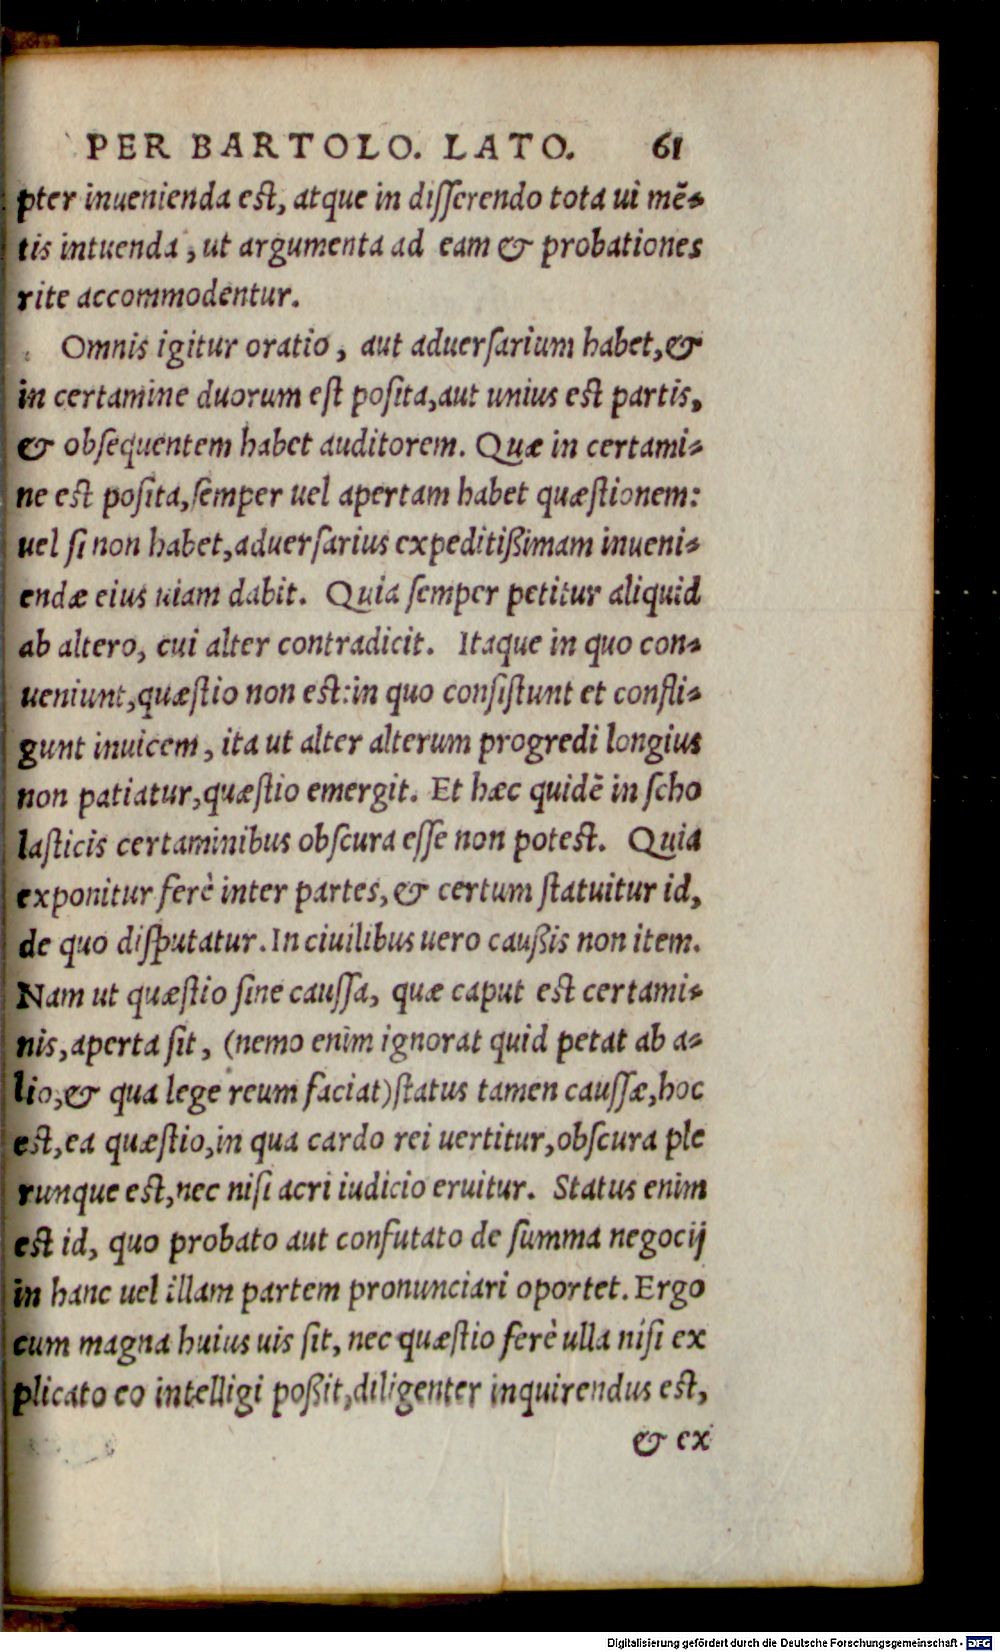 PER BARTOLO. LATO. 61
pter inuenienda est, atque in disserendo tota ui mē-
tis intuenda, ut argumenta ad eam & probationes
rite accommodentur.
Omnis igitur oratio, aut aduersarium habet, &
in certamine duorum est posita, aut unius est partis,
& obsequentem habet auditorem. Quæ in certami-
ne est posita, semper uel apertam habet quæstionem:
uel si non habet, aduersarius expeditißimam inueni-
endæ eius uiam dabit. Quia semper petitur aliquid
ab altero, cui alter contradicit. Itaque in quo con-
ueniunt, quæstio non est: in quo consistunt et confli-
gunt inuicem, ita ut alter alterum progredi longius
non patiatur, quæstio emergit. Et hæc quidē in scho
lasticis certaminibus obscura esse non potest. Quia
exponitur ferè inter partes, & certum statuitur id,
de quo disputatur. In ciuilibus uero caußis non item.
Nam ut quæstio sine caussa, quæ caput est certami-
nis, aperta sit, (nemo enim ignorat quid petat ab a-
lio, & qua lege reum faciat) status tamen caussæ, hoc
est, ea quæstio, in qua cardo rei uertitur, obscura ple
runque est, nec nisi acri iudicio eruitur. Status enim
est id, quo probato aut confutato de summa negocij
in hanc uel illam partem pronunciari oportet. Ergo
cum magna huius uis sit, nec quæstio ferè ulla nisi ex
plicato eo intelligi poßit, diligenter inquirendus est,
& ex
Digitalisierung gefördert durch die Deutsche Forschungsgemeinschaft - DFG